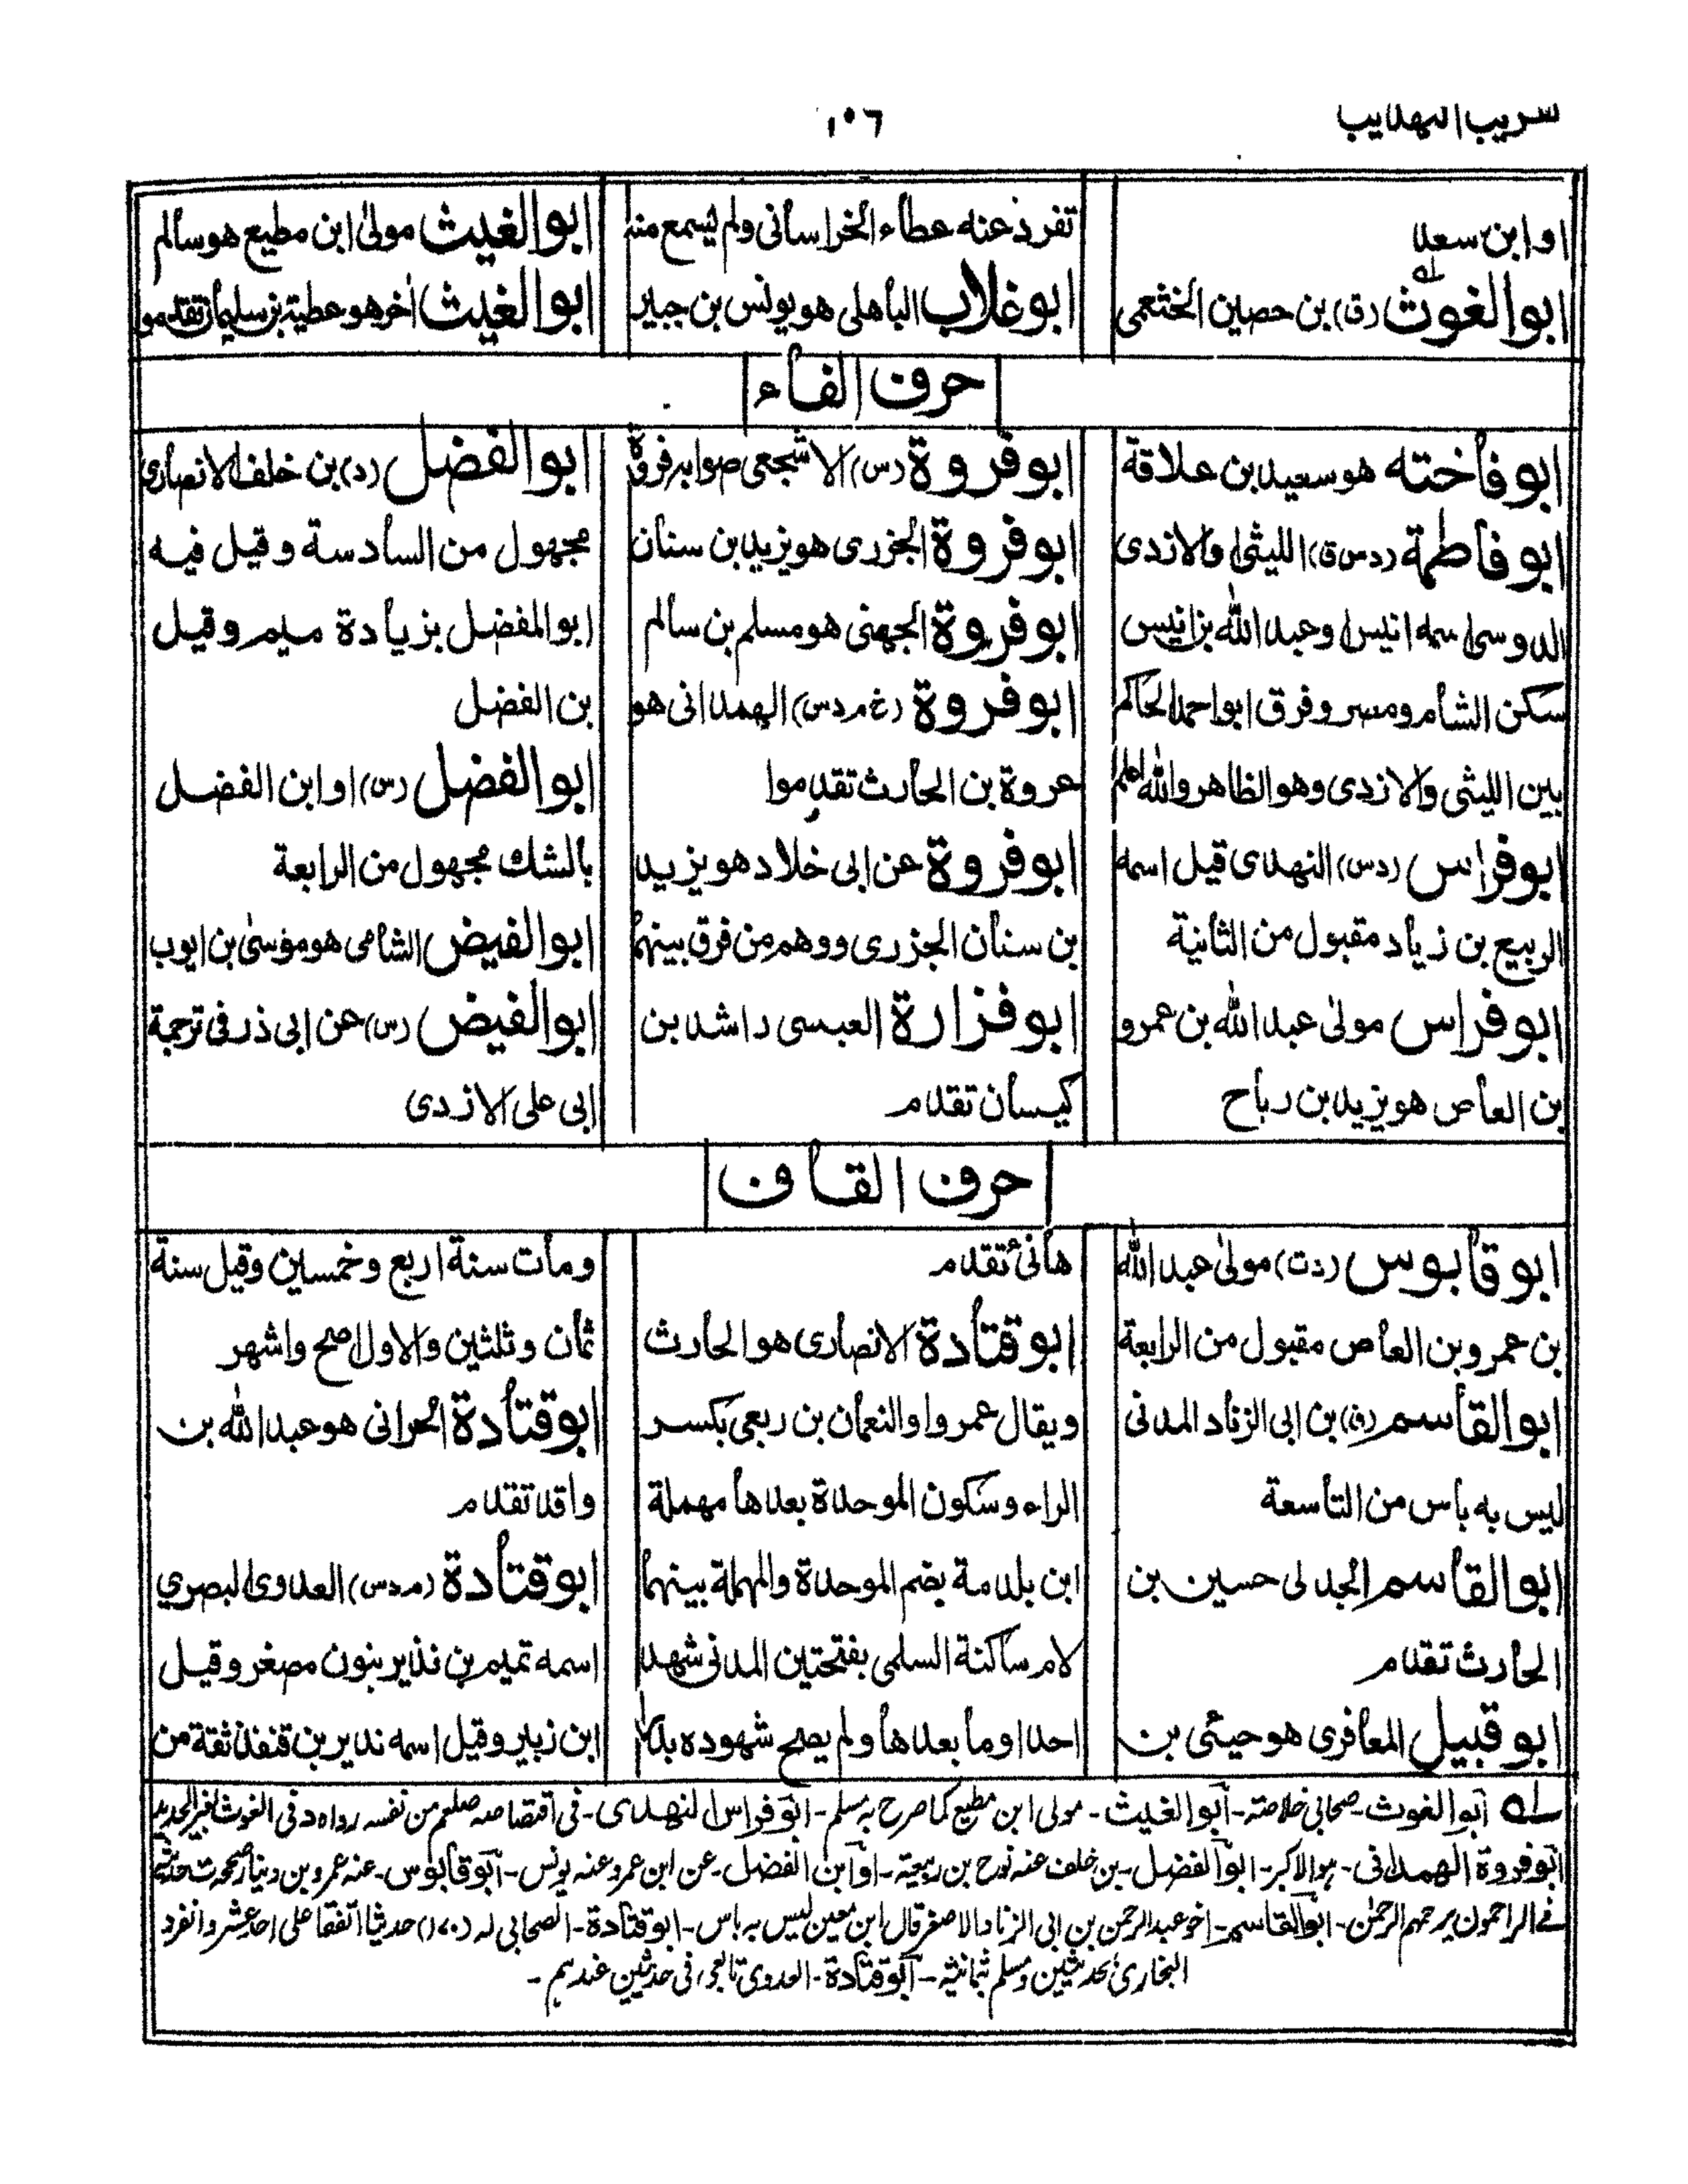 تقريب التهذيب
١٠٥٦
او ابن سعد
ابو الغوث (ق) بن حصين الخثعمى
تفرد عنه عطاء الخراسانى ولم يسمع منه
ابو غلاب الباهلى هو يونس بن جبير
ابو الغيث مولى ابن مطيع هو سالم
ابو الغيث اخر هو عطية بن سليمان تقدموا
حرف الفاء
ابو فاخته هو سعيد بن علاقة
ابو فاطمة (د س ق) الليثى او الازدى
الدوسى اسمه انيس او عبد الله بن انيس
سكن الشام ومصر وفرق ابو احمد الحاكم
بين الليثى والازدى وهو الظاهر والله اعلم
ابو فراس (د س) النهدى قيل اسمه
الربيع بن زياد مقبول من الثانية
ابو فراس مولى عبد الله بن عمرو
بن العاص هو يزيد بن رباح
ابو فروة (س) الاشجعى صوابه فروة
ابو فروة الجزرى هو يزيد بن سنان
ابو فروة الجهنى هو مسلم بن سالم
ابو فروة (خ م د س) الهمدانى هو
عروة بن الحارث تقدموا
ابو فروة عن ابى خلاد هو يزيد
بن سنان الجزرى ووهم من فرق بينهما
ابو فزارة العبسى راشد بن
كيسان تقدم
ابو الفضل (د) بن خلف الانصارى
مجهول من السادسة وقيل فيه
ابو المفضل بزيادة ميم وقيل
بن الفضل
ابو الفضل (س) او ابن الفضل
بالشك مجهول من الرابعة
ابو الفيض الشامى هو موسى بن ايوب
ابو الفيض (س) عن ابى ذر فى ترجمة
ابى على الازدى
حرف القاف
ابو قابوس (د ت) مولى عبد الله
بن عمرو بن العاص مقبول من الرابعة
ابو القاسم (ق) بن ابى الزناد المدنى
ليس به باس من التاسعة
ابو القاسم الجدلى حسين بن
الحارث تقدم
ابو قبيل المعافرى هو حيئى بن
هانئ تقدم
ابو قتادة الانصارى هو الحارث
ويقال عمرو او النعمان بن ربعى بكسر
الراء وسكون الموحدة بعدها مهملة
ابن بلدمة بضم الموحدة والمهملة بينهما
لام ساكنة السلمى بفتحتين المدنى شهد
احدا وما بعدها ولم يصح شهوده بدرا
ومات سنة اربع وخمسين وقيل سنة
ثمان وثلثين والاول اصح واشهر
ابو قتادة الحرانى هو عبد الله بن
واقد تقدم
ابو قتادة (م د س) العدوى البصري
اسمه تميم بن نذير بنون مصغر وقيل
ابن زبير وقيل اسمه نذير بن قنفذ ثقة من
له ابو الغوث - صحابى خلاصة - ابو الغيث - مولى ابن مطيع كما صرح به مسلم - ابو فراس النهدى - فى اقتصاصه صلعم من نفسه رواه د فى الغوث بغير الحديد
ابو فروة الهمدانى - هو الاكبر - ابو الفضل - بن خلف عنه نوح بن ربيعة - او ابن الفضل - عن ابن عمر وعنه يونس - ابو قابوس - عنه عمرو بن دينار صحح ت حديثه
فى الراحمون يرحمهم الرحمن - ابو القاسم - اخو عبد الرحمن بن ابى الزناد الاصغر قال ابن معين ليس به باس - ابو قتادة - الصحابى له (١٧٠) حديثا اتفقا على احد عشر وانفرد
البخارى بحديثين ومسلم بثمانية - ابو قتادة - العدوى تابعى، فى حديثين عندهم -